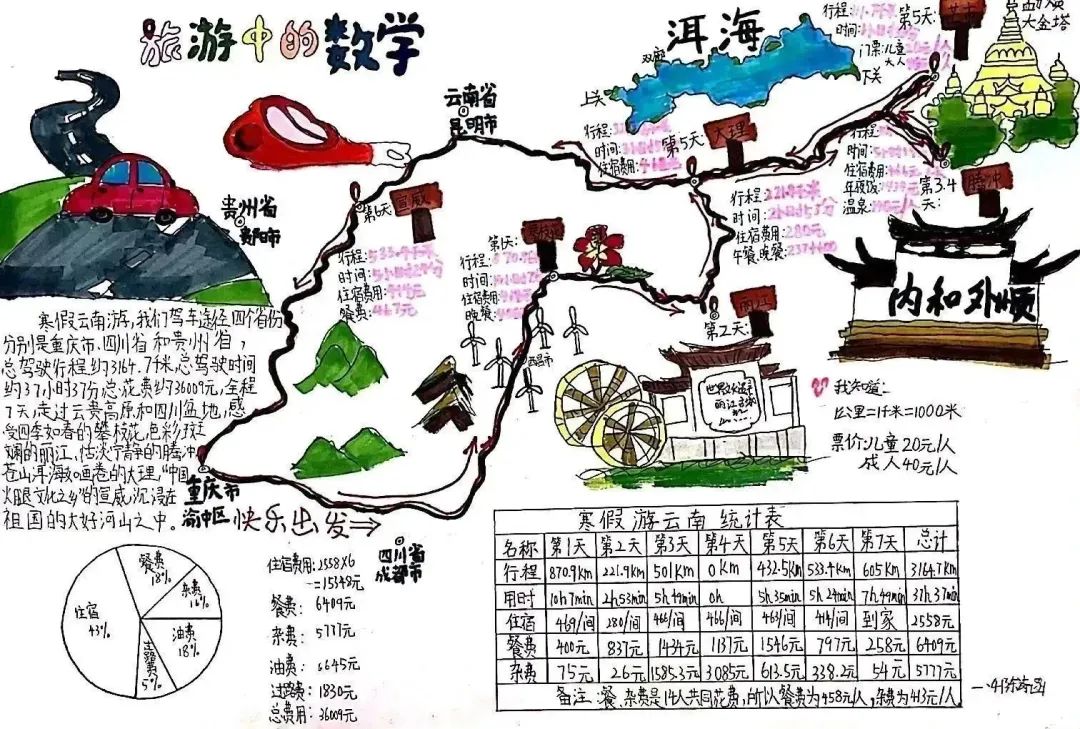 旅游中的数学
洱海
双廊
上关
下关
云南省
昆明市
贵州省
贵阳市
第5天:
大金塔
行程:
时间:
门票:儿童
大人
第5天:
大理
行程:
时间:
住宿费用:
行程:
时间:
住宿费用:
年夜饭:
温泉:
第3.4
天:
腾冲
行程:221.9千米
时间:2小时53分
住宿费用:280元
午餐、晚餐:237+600
第6天
宣威
行程:533.4千米
时间:5小时24分
住宿费用:
餐费:
第1天:
行程:870.9
时间:
住宿费用:
晚餐
西昌市
丽江
第2天:
内和外顺
世界文化遗产
丽江古城
我知道:
1公里=1千米=1000米
票价:儿童20元/人
成人40元/人
寒假云南游,我们驾车途径四个省份
分别是重庆市、四川省和贵州省,
总驾驶行程约3164.7千米,总驾驶时间
约37小时37分,总花费约36009元,全程
7天,走过云贵高原和四川盆地,感
受四季如春的攀枝花,色彩斑
斓的丽江,恬淡宁静的腾冲,
苍山洱海如画卷的大理,“中国
火腿文化之乡”的宣威,沉浸在
祖国的大好河山之中。
重庆市
渝中区
快乐出发⇒
四川省
成都市
餐费
18%
杂费
16%
油费
18%
过路费
5%
住宿
43%
住宿费用:2558×6
=15348元
餐费: 6409元
杂费: 5777元
油费: 6645元
过路费: 1830元
总费用: 36009元
寒假游云南统计表
名称 第1天 第2天 第3天 第4天 第5天 第6天 第7天 总计
行程 870.9km 221.9km 501km 0km 432.5km 533.4km 605km 3164.7km
用时 10h7min 2h53min 5h49min 0h 5h35min 5h24min 7h49min 37h37min
住宿 469/间 280/间 466/间 466/间 463/间 414/间 到家 2558元
餐费 400元 837元 1434元 1137元 1546元 797元 258元 6409元
杂费 75元 26元 1585.3元 3085元 613.5元 338.2元 54元 5777元
备注:餐、杂费是14人共同花费,所以餐费为458元/人,杂费为413元/人。